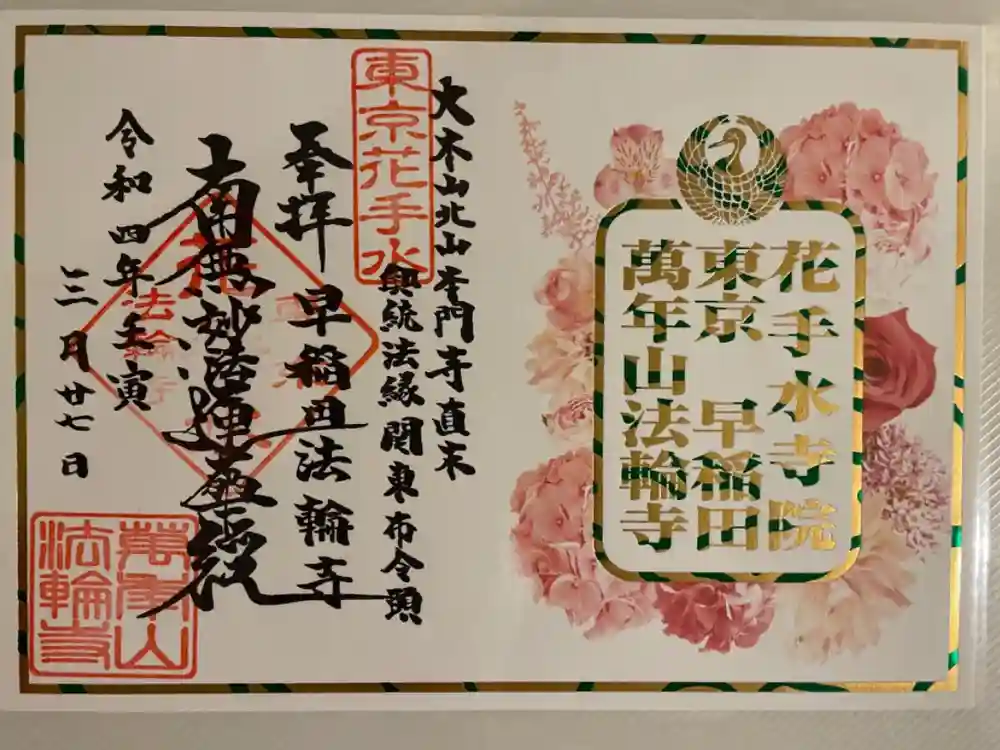 花手水寺院
東京 早稲田
萬年山法輪寺
大本山北山本門寺直末
東京花手水
興統法縁関東布令頭
奉拝 早稲田法輪寺
南無妙法蓮華経
令和四年壬寅
三月廿七日
萬年山
法輪寺